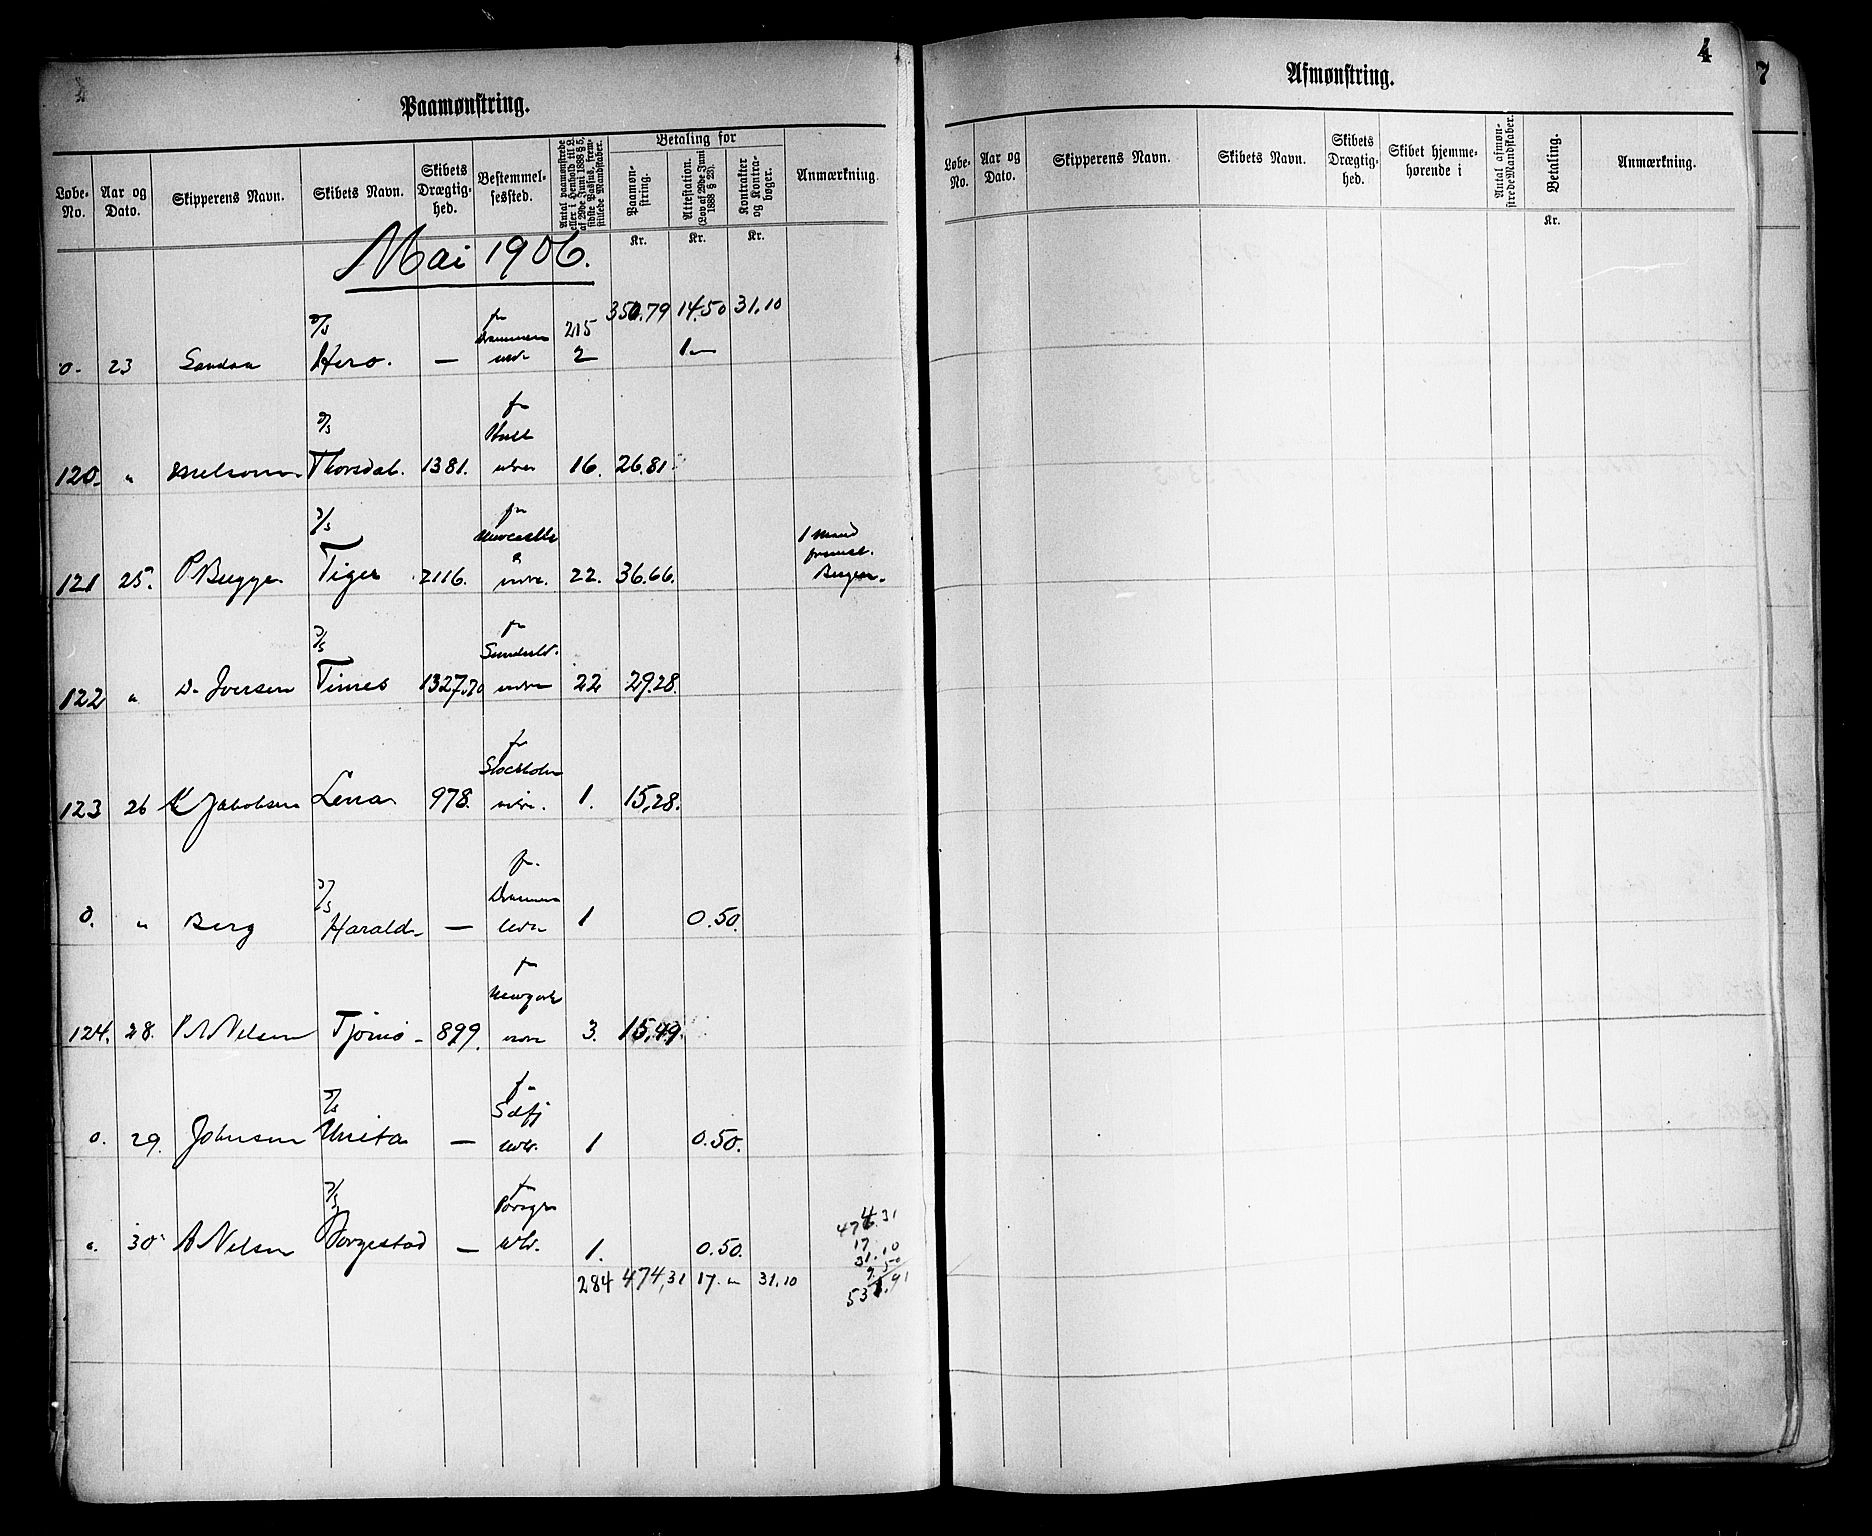 Paamønstring.
Løbe-No. Aar og Dato. Skipperens Navn. Skibets Navn. Skibets Drægtig-hed. Bestemmel-sessted. Antal paamønstrede eller i Henhold til L. af 29de Juni 1888 § 5, sidste Passus, frem-stillede Mandskaber. Betaling for Anmærkning.
Paamøn-string. Attestation. (Lov af 29de Juni 1888 § 23). Kontrakter og Kontra-bøger.
Kr. Kr. Kr.
Mai 1906.
350.79 14.50 31.10
D/S fr 215
0. 23 Sandaa Hero. — Drammen 2 1 "
D/S fr
Hull
120. " Thorsdal. 1381. 16. 26.81
D/S fr
Newcastle 1 Mand
121 25. P Bugge Tiger 2116. 22. 36.66. fremst. Bergen.
D/S fr
Sunderld.
122 " D. Iversen Times 1327.20 22 29.28.
fr
Stockholm
123 26 K Jakobsen Lena 978. 1. 15,28.
D/S fr.
Drammen
0. " Berg Harald — 1 0.50.
fr
Newyork
124. 28. P A Nelsen Tjømø 899. 3. 15,49.
D/S fr
Sdfj
0. 29. Johnsen Unita — 1 0.50.
D/S fr
Porsgr
0. 30 A Nelsen Borgestad — 1. 0.50.
284 474,31 17. " 31.10
474.31
17
31.10
9.50
531.91
4
Afmønstring.
Løbe-No. Aar og Dato. Skipperens Navn. Skibets Navn. Skibets Drægtig-hed. Skibet hjemme-hørende i Antal afmøn-strede Mandskaber. Betaling. Anmærkning.
Kr.
7